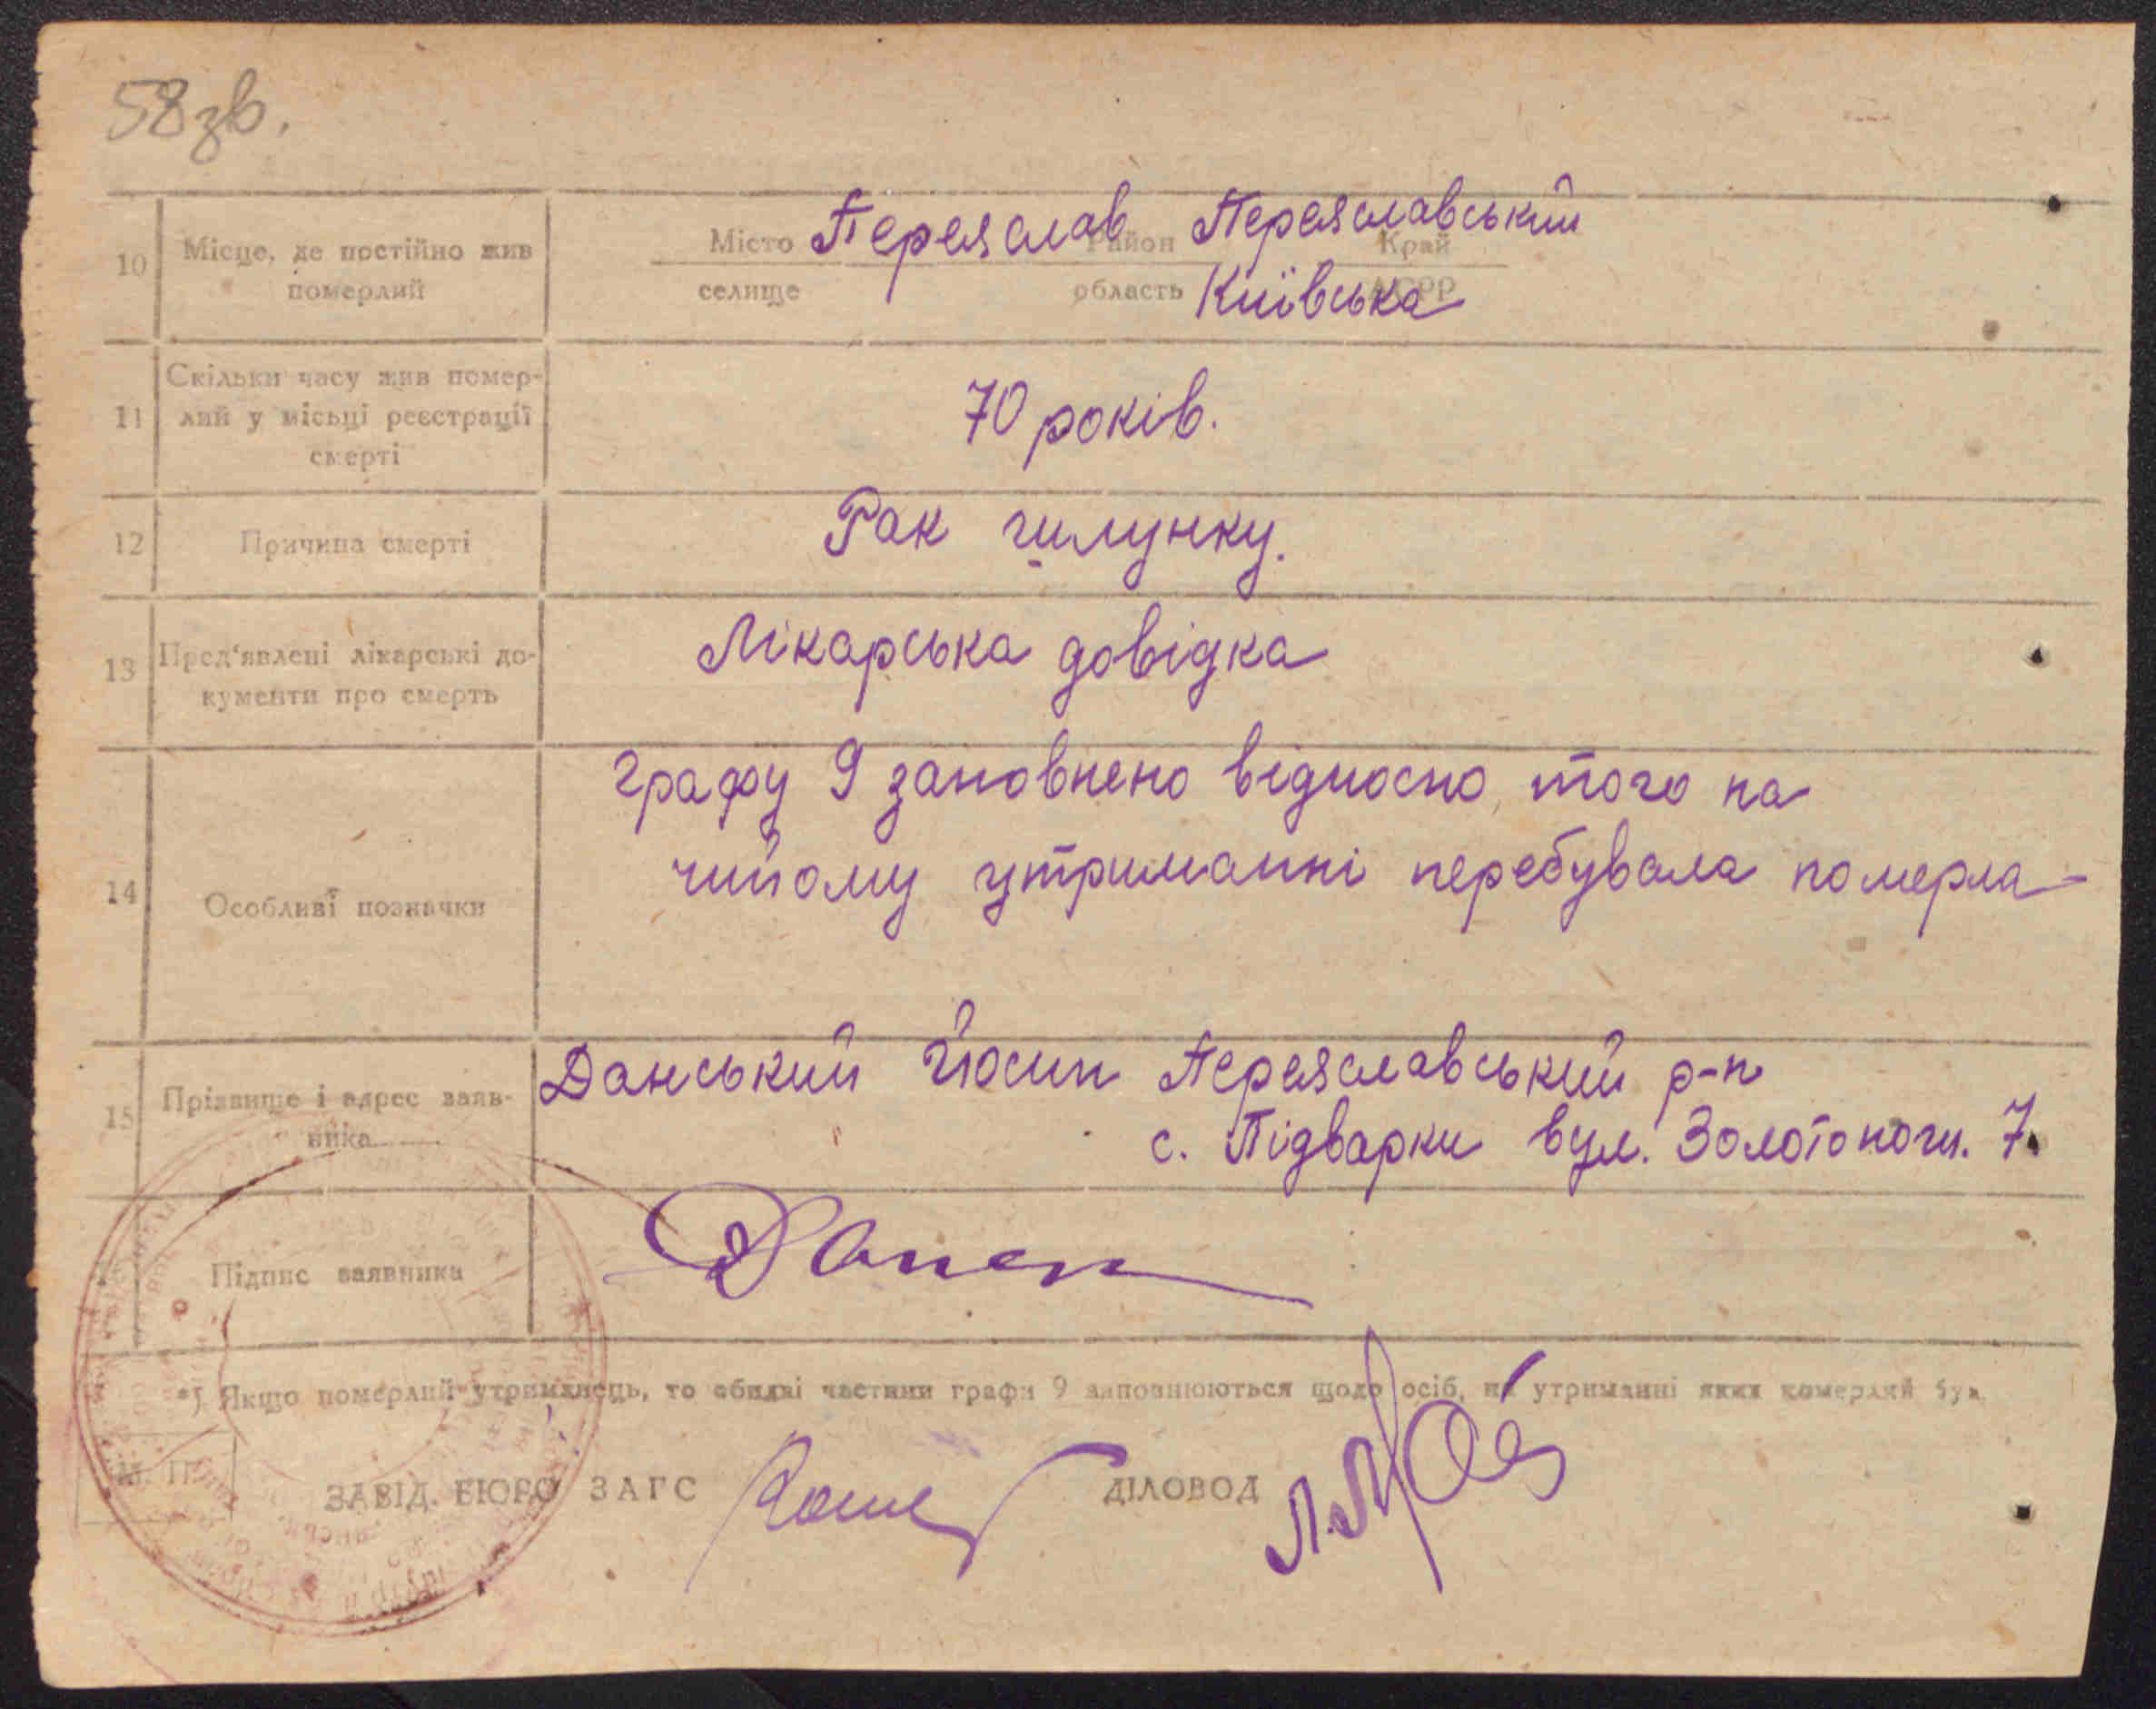 58 зв.
10 Місце, де постійно жив померлий
Місто Переяслав Район Переяславський Край
селище область Київська АСРР
11 Скільки часу жив помер-
лий у місьці реєстрації
смерті
70 років.
12 Причина смерті
Рак шлунку.
13 Пред'явлені лікарські до-
кументи про смерть
Лікарська довідка
14 Особливі позначки
графу 9 заповнено відносно того на
чийому утриманні перебувала померла
15 Прізвище і адрес заяв-
ника
Данський Йосип Переяславський р-н
с. Підварки вул. Золотонош. 7.
Підпис заявника
*) Якщо померлий утриманець, то обидві частини графи 9 заповнюються щодо осіб, на утриманні яких померлий був
М. П.
ЗАВІД. БЮРО ЗАГС
ДІЛОВОД